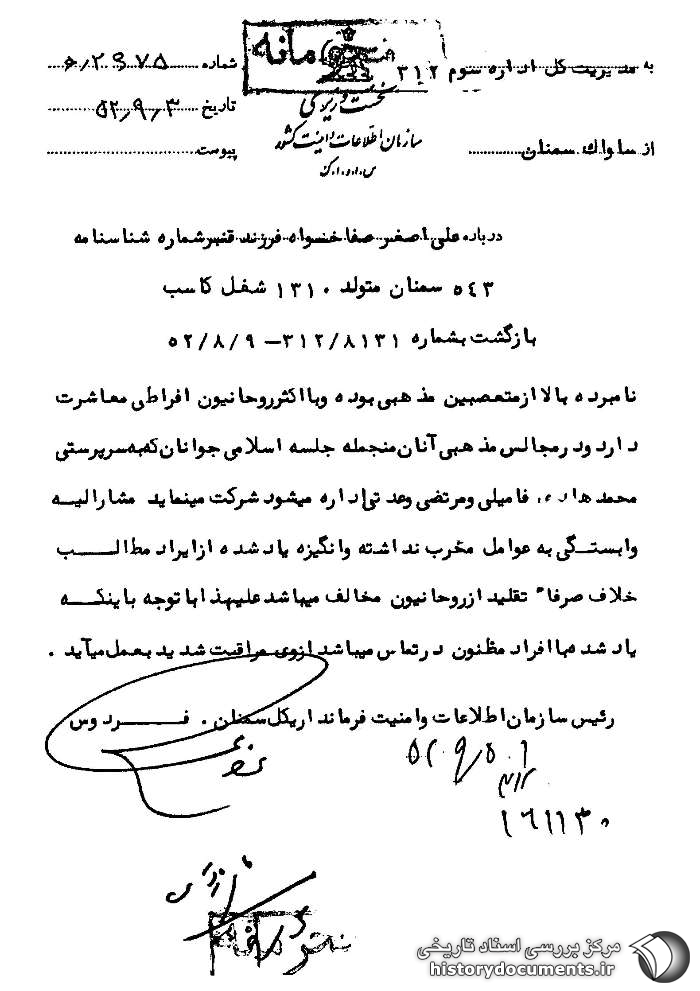 به مدیریت کل اداره سوم ۳۱۲
محرمانه
شماره ۶/۲۹۷۵
نخست وزیری
تاریخ ۵۲/۹/۳
سازمان اطلاعات و امنیت کشور
از ساواك سمنان
پیوست
س.ا.و.ا.ك
درباره علی اصغر صفاخواه فرزند قنبر شماره شناسنامه
۵۴۳ سمنان متولد ۱۳۱۰ شغل کاسب
بازگشت بشماره ۳۱۲/۸۱۳۱ – ۵۲/۸/۹
نامبرده بالا از متعصبین مذهبی بوده و با اکثر روحانیون افراطی معاشرت
دارد و در مجالس مذهبی آنان منجمله جلسه اسلامی جوانان که به سرپرستی
محمد هادی فامیلی و مرتضی وعدتی اداره میشود شرکت مینماید مشارالیه
وابستگی به عوامل مخرب نداشته و انگیزه یاد شده از ایراد مطالب
خلاف صرفاً تقلید از روحانیون مخالف میباشد علیهذا با توجه باینکه
یاد شده با افراد مظنون در تماس میباشد از وی مراقبت شدید بعمل میآید .
رئیس سازمان اطلاعات و امنیت فرمانداریکل سمنان . فردوس
۳۱۲
۱۶۱۱۳۰
مرکز بررسی اسناد تاریخی
historydocuments.ir